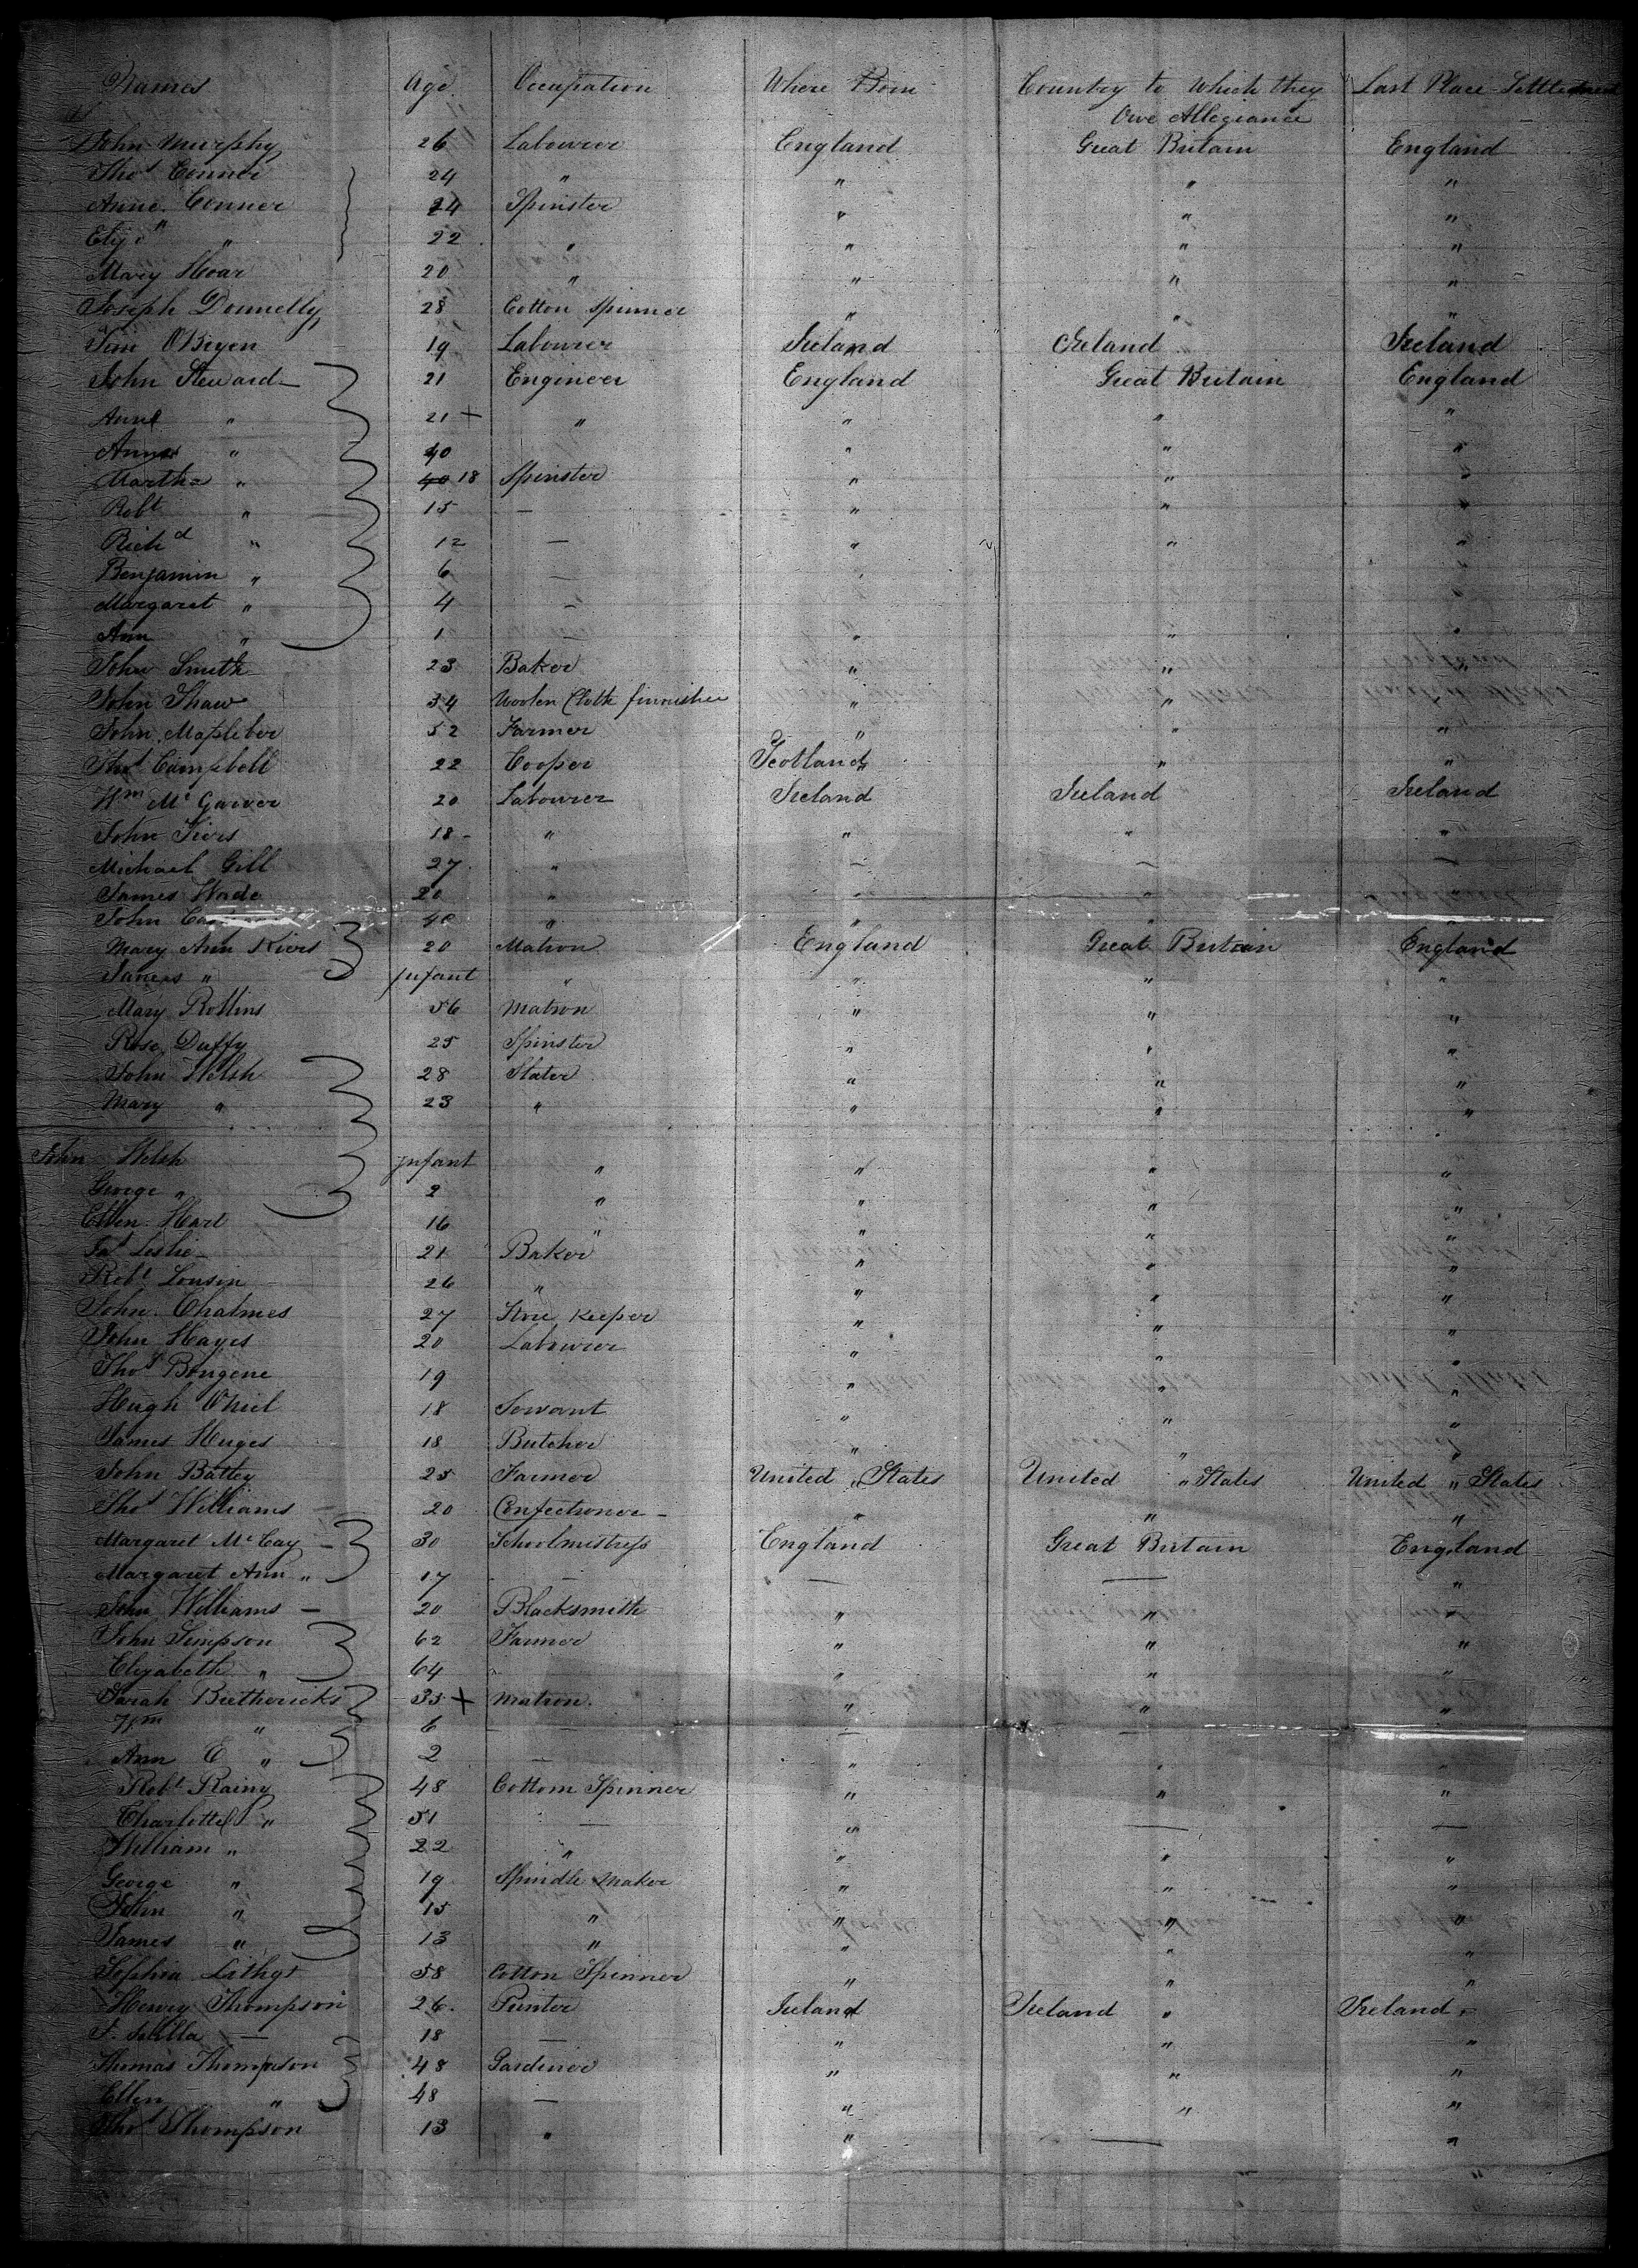 Names Age Occupation Where Born Country to Which they Last Place Settlement
Owe Allegiance
John Murphy 26 Labourer England Great Britain England
Thos Conner 24 " " " "
Anne Conner 24 Spinster " " "
Eliz " 22 " " " "
Mary Hoar 20 " " " "
Joseph Donnelly 28 Cotton Spinner " " "
Tim OBryen 19 Labourer Ireland Ireland Ireland
John Steward 21 Engineer England Great Britain England
Ann " 21 + " " " "
Ann " 40 " " "
Martha " 40 18 Spinster " " "
Robt " 15 — " " "
Richd " 12 — " " "
Benjamin " 6 — " " "
Margaret " 4 — " " "
Ann " 1 — " " "
John Smith 23 Baker " " "
John Shaw 34 Woolen Cloth finnisher " " "
John Mapleber 52 Farmer " " "
Thos Campbell 22 Cooper Scotland " "
Wm Mc Garver 20 Labourer Ireland Ireland Ireland
John Kiers 18 " " " "
Michael Gill 27 " — — —
James Wade 20 " " " "
John 40 " " " "
Mary Ann Kiers 20 Matron England Great Britain England
James " Infant " " " "
Mary Rollins 56 Matron " " "
Rose Duffy 25 Spinster " " "
John Welsh 28 Slater " " "
Mary " 23 " " " "
John Welsh Infant " " " "
George " 2 " " " "
Ellen Hart 16 " " " "
Jas Leslie 21 Baker " " "
Robt Lousin 26 " " " "
John Chalmes 27 Store Keeper " " "
John Hayes 20 Labourer " " "
Thos Bongene 19 " " "
Hugh ONeil 18 Servant " " "
James Huges 18 Butcher " " "
John Batley 25 Farmer United States United States United States
Thos Williams 20 Confectioner " " "
Margaret Mc Cay 30 Schoolmistress England Great Britain England
Margaret Ann " 17 — — — "
John Williams 20 Blacksmith " " "
John Simpson 62 Farmer " " "
Elizabeth " 64 " " " "
Sarah Brethericks 35 + Matron " " "
Wm " 6 — — —
Ann E " 2 — " " "
Robt Rainy 48 Cottom Spinner " " "
Charlotte " 51 — " — —
William " 22 " " " "
George " 19 Spindle Maker " " "
John " 15 " " " "
James " 13 " " " "
Sophia Lithgt 58 Cotton Spinner " " "
Henry Thompson 26 Printer Ireland Ireland " Ireland "
18 — " " "
Thomas Thompson 48 Gardiner " " "
Ellen " 48 — " " "
Thos Thompson 13 " " — "